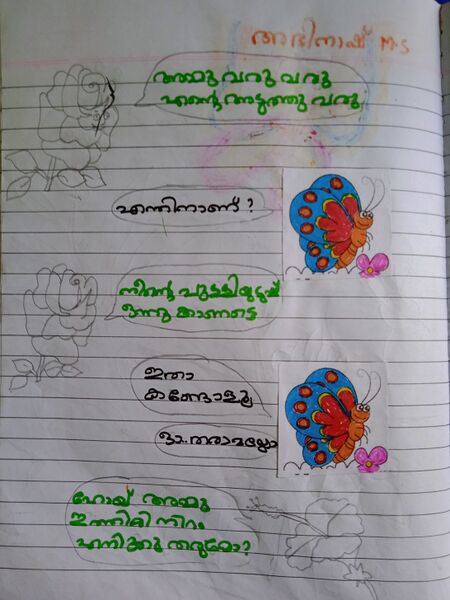 അഭിനാഷ് M.S
അമ്മു വരു വരു
എന്റെ അടുത്തു വരു
എന്തിനാണ്?
നിന്റെ പുള്ളിയുടുപ്പ്
ഒന്നു കാണട്ടെ
ഇതാ
കണ്ടോളൂ
ഓ..തരാമല്ലോ
ഹായ് അമ്മു
ഇത്തിരി നിറം
എനിക്കു തരുമോ?